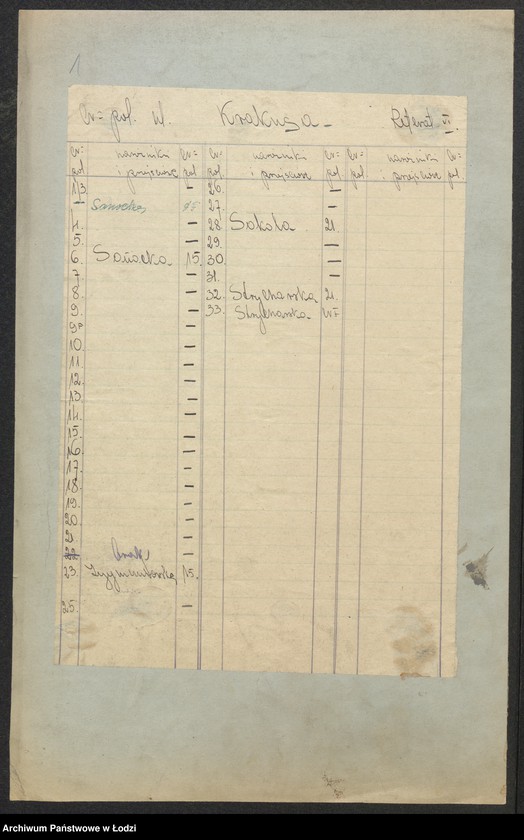 1
Nr= pol. ul. Krakusa - Referat VI.
Nr= pol. narożniki i przejścia Nr= pol. Nr= pol. narożniki i przejścia Nr= pol. Nr= pol. narożniki i przejścia Nr= pol.
1/3. — 26 —
— 27. —
4. — 28 Sokola 21.
5. — 29. —
6. Sanocka 15. 30. —
7 — 31. —
8. — 32. Strycharska 21.
9. — 33. Strycharska
9a —
10. —
11. —
12. —
13. —
14. —
15. —
16. —
17. —
18. —
19. —
20. —
21 —
22 brak —
23. 15.
25. —
Archiwum Państwowe w Łodzi